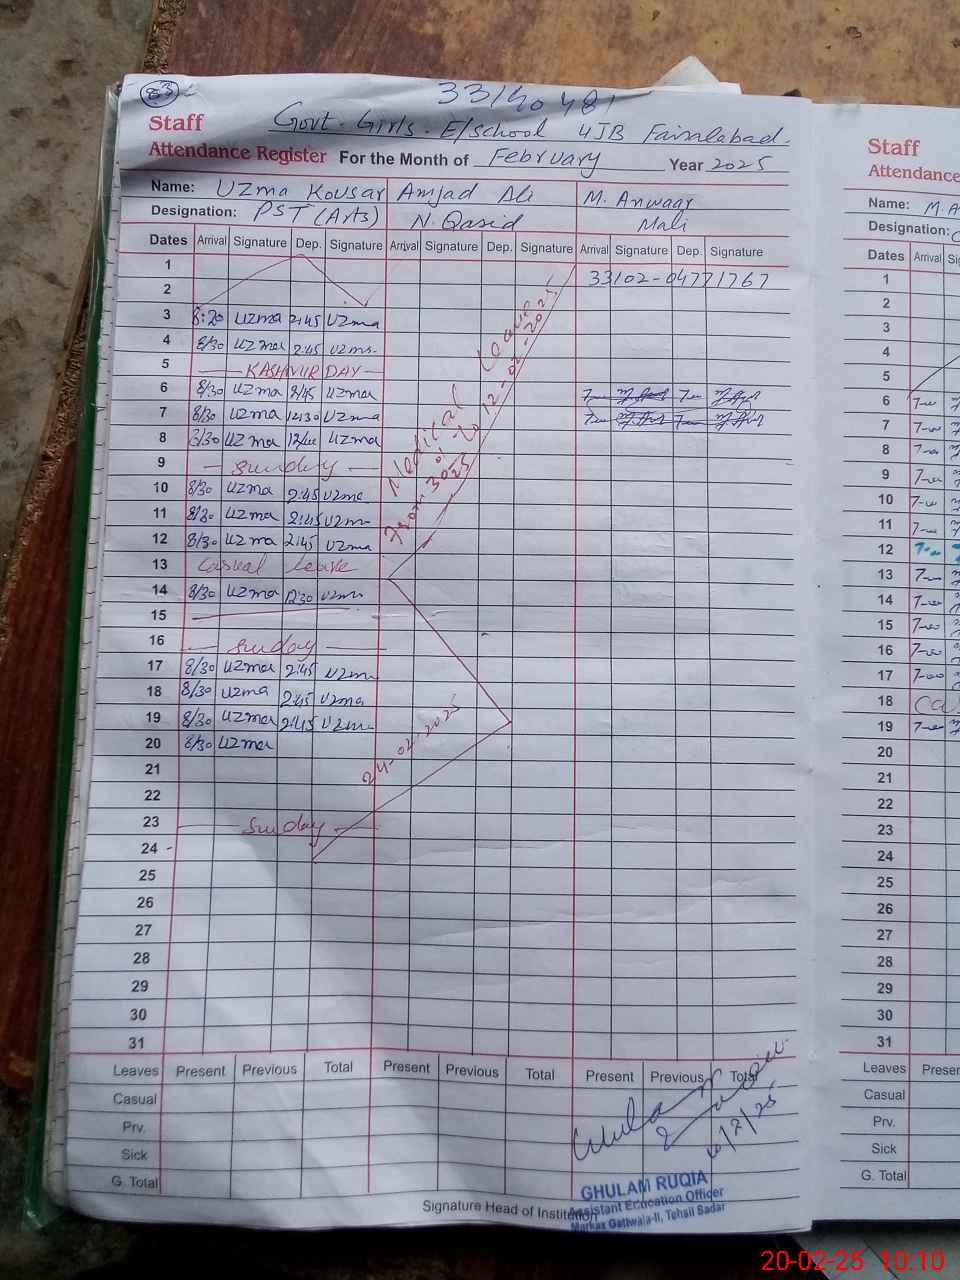 33140481
Staff
Govt. Girls. E/school 4JB Faisalabad.
Attendance Register For the Month of February Year 2025
Name: Uzma Kousar Amjad Ali M. Anwaar
Designation: PST (Arts) N. Qasid Mali
Dates Arrival Signature Dep. Signature Arrival Signature Dep. Signature Arrival Signature Dep. Signature
1 33102-04771767
2
3 8:20 uzma 2:45 uzma
4 8/30 uzma 2:45 uzma
5 KASHMIR DAY
6 8/30 uzma 2/45 uzma
7 8/30 uzma 12:30 uzma
8 8/30 uzma uzma
9 Sunday
10 8/30 uzma 2:45 uzma
11 8/30 uzma 2:45 uzma
12 8/30 uzma 2:45 uzma
13 Casual leave
14 8/30 uzma 12:30 uzma
15
16 Sunday
17 8/30 uzma 2:45 uzma
18 8/30 uzma 2:45 uzma
19 8/30 uzma 2:45 uzma
20 8/30 uzma
21
22
23 Sunday
24
25
26
27
28
29
30
31
Medical Leave
24-02-2025
Leaves Present Previous Total Present Previous Total Present Previous Total
Casual
Prv.
Sick
G. Total
GHULAM RUQIA
Assistant Education Officer
Markaz Gattwala-II, Tehsil Sadar
Signature Head of Institution
Staff
Attendance
Name: M.
Designation:
Dates Arrival
1
2
3
4
5
6 7-00
7 7-00
8 7-00
9 7-00
10 7-00
11 7-00
12 7-00
13 7-00
14 7-00
15 7-00
16 7-00
17 7-00
18
19 7-00
20
21
22
23
24
25
26
27
28
29
30
31
Leaves
Casual
Prv.
Sick
G. Total
20-02-25 10:10